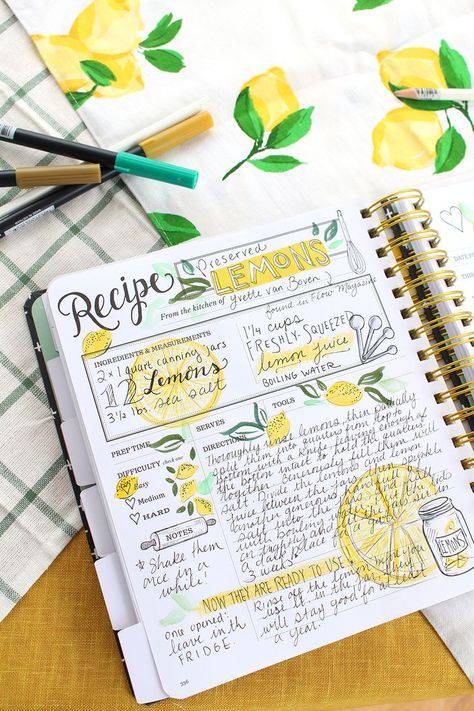 Recipe
Preserved
LEMONS
From the kitchen of Yvette van Boven
found in Flow Magazine
INGREDIENTS & MEASUREMENTS
2 x 1 quart canning jars
12 Lemons
3 1/2 lbs. sea salt
1 1/4 cups
FRESHLY-SQUEEZED
lemon juice
BOILING WATER
PREP TIME
SERVES
TOOLS
DIFFICULTY check one
Easy
Medium
HARD
NOTES
* Shake them
once in a
while!
once opened,
leave in the
FRIDGE.
DIRECTIONS
Thoroughly rinse lemons, then partially
split them into quarters from top to
bottom with a knife, leaving enough at
the bottom intact to hold the quarters
together. Generously fill them with
salt. Divide the lemons and lemon
3 weeks
NOW THEY ARE READY TO USE!
Rinse off the lemon before you
use it.
will stay good for at least
a year.
LEMONS
336